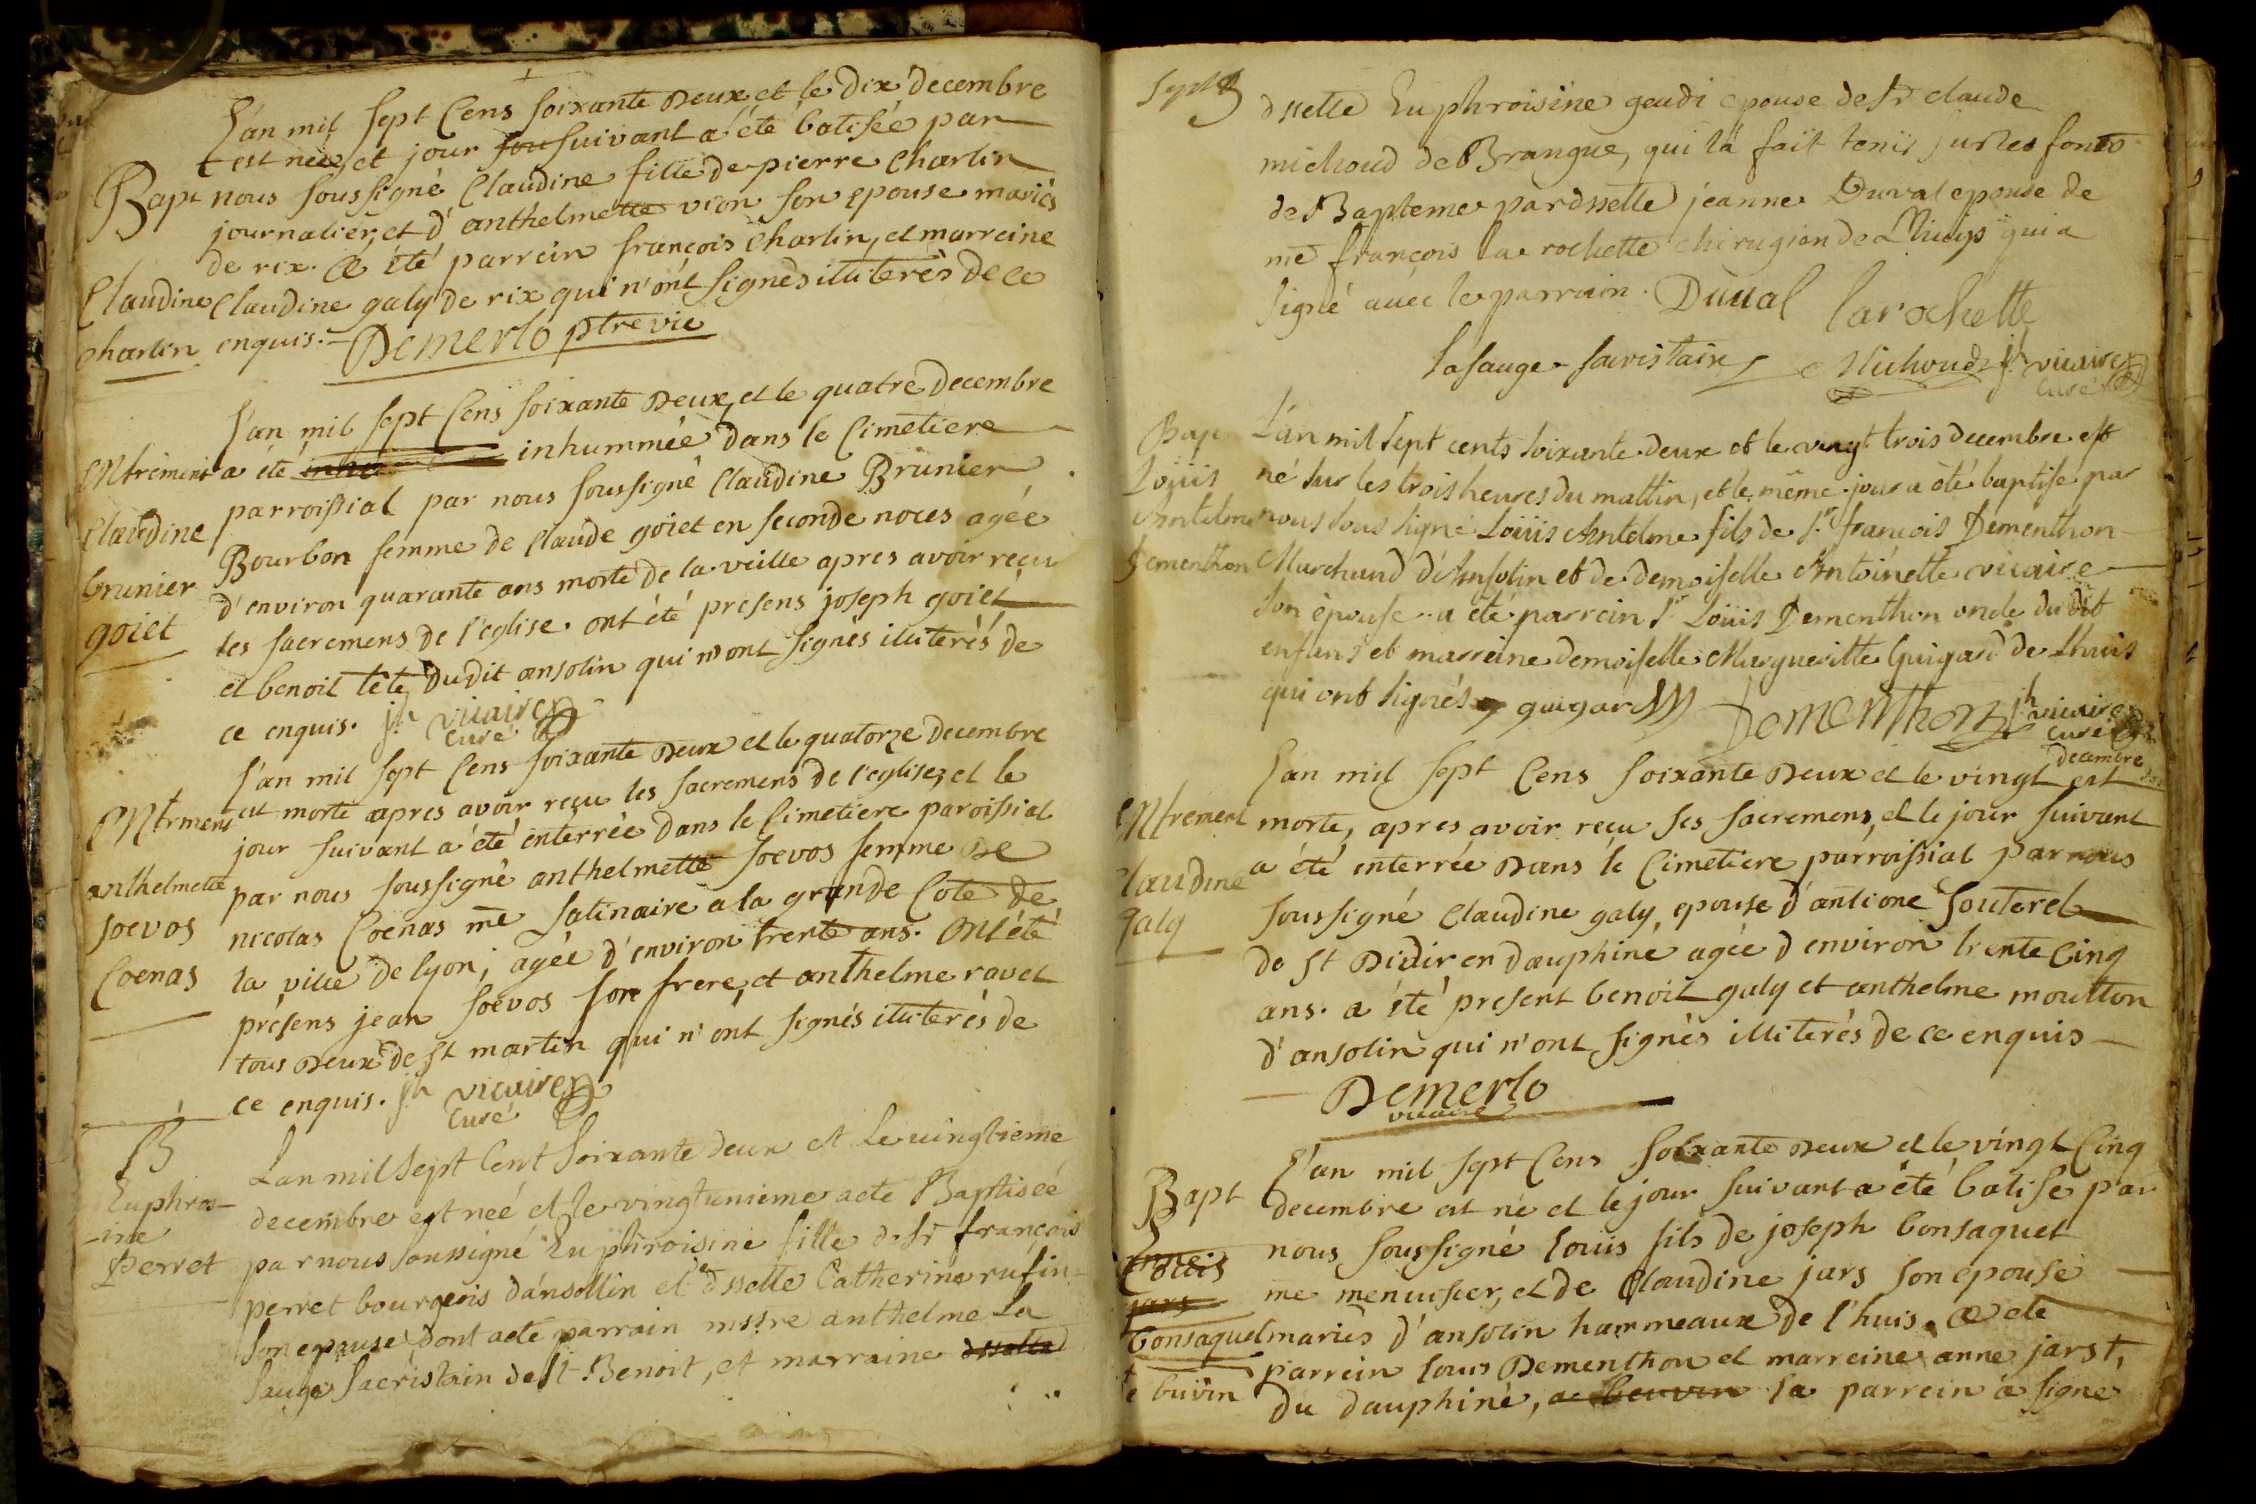 L'an mil sept Cens soixante Deux et le Dix decembre
est neé, et jour sou suivant a été batisée par
Bapt nous soussigné Claudine fille de pierre Charlin
journalier, et d'anthelmette vion son epouse mariés
de rix. a été parrein françois Charlin, et marreine
Claudine Claudine galy de rix qui n'ont signés illiterés de ce
Charlin enquis. Demerlo ptre vic
L'an mil sept Cens soixante Deux, et le quatre Decembre
Entrement a été inhu inhummée dans le Cimetiere
parroissial par nous soussigné Claudine Brunier
Claudine Bourbon femme de Claude goiet en seconde noces agée
brunier d'environ quarante ans morte de la veille apres avoir reçu
goiet les sacremens de l'eglise. ont été presens joseph goiet
et benoit tête dudit ansolin qui n'ont signés illiterés de
ce enquis. jh vicaire
curé
L'an mil sept Cens soixante Deux et le quatorze decembre
Entrment est morte apres avoir reçu les sacremens de l'eglise, et le
jour suivant a été enterrée dans le Cimetiere paroissial
anthelmette par nous soussigné anthelmette soevos femme De
soevos nicolas Coenas me satinaire a la grande Cote de
Coenas la ville de lyon, agée d'environ trente ans. Ont été
présens jean soevos son frere, et anthelme ravet
tous Deux de st martin qui n'ont signés illiterés de
ce enquis. jh vicaire
Curé
B Lan mil sept Cent soixante deux et Le vingtieme
Euphroi- decembre est neé et le vingtunieme acte Baptiseé
-ine
Perret par nous soussigné Euphroisine fille de sr françois
perret bourgeois d'ansollin et dsselle Catherine rufin
son epouse dont acte parrain mssre anthelme La
sauge sacristain de st Benoit, et marraine dsselle
sept 8 dsselle Euphroisine gaudi epouse de sr claude
michoud de Brangue, qui la fait tenir sur les fonts
de Bapteme par dsselle jeanne Duval epouse de
me françois la rochette chirugien de Lhuys qui a
signé avec le parrain. Duual larochette
lasauge sacristain Michoud jh vicaire
curé
Bap L'an mil sept cents soixante deux et le vingt trois decembre est
Loüis né sur les trois heures du mattin, et le même jour a été baptise par
Antelme nous sous signé Loüis Antelme fils de sr françois Dementhon
Dementhon Marchand d'Ansolin et de demoiselle Antoinette vicaire
son épouse. a été parrein sr Loüis Dementhon oncle du dit
enfant et marreine demoiselle Margueritte Guigard de lhuis
qui ont signés guigard Dementhon jh vicaire
curé
decembre
L'an mil sept Cens soixante Deux et le vingt est
Entrement morte, apres avoir reçu ses sacremens, et le jour suivant
Claudine a été enterrée Dans le Cimetiere parroissial par nous
galy soussigné Claudine galy, epouse d'antione souterel
de st Didier en dauphiné agée d environ trente Cinq
ans. a été present benoit galy et anthelme moutton
d'ansolin qui n'ont signés illiterés de ce enquis
Demerlo
vicaire
L'an mil sept Cens soixante Deux et le vingt Cinq
Bapt decembre est né et le jour suivant a été batise par
Louis nous soussigné louis fils de joseph bonsaquet
jars me menuisier, et de Claudine jars son epouse
bonsaquet mariés d'ansolin hammeaux de l'huis. a ete
parrein louis Dementhon et marreine anne jars t,
buvin du dauphiné, a beuvin la parrein a signe